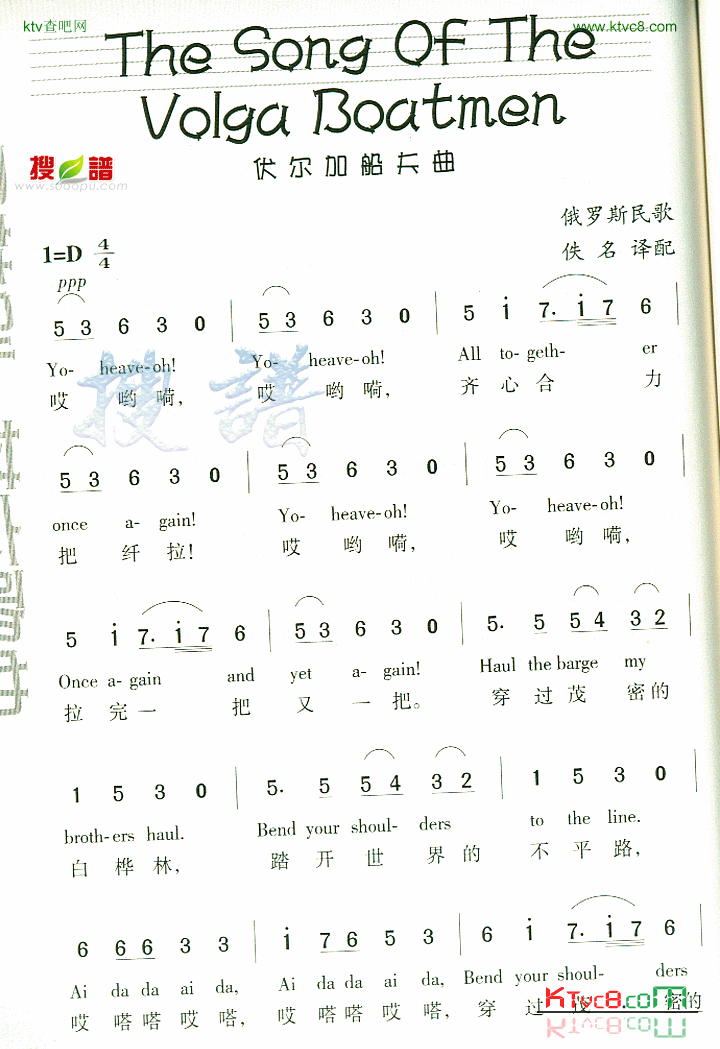 ktv查吧网
www.ktvc8.com
The Song Of The
Volga Boatmen
搜 譜
www.sooopu.com
伏尔加船夫曲
俄罗斯民歌
1=D 4/4
佚 名 译配
ppp
5 3 6 3 0 | 5 3 6 3 0 | 5 i 7. i 7 6
Yo- heave-oh! Yo- heave-oh! All to-geth- er
哎 哟嗬, 哎 哟嗬, 齐心合 力
搜譜
5 3 6 3 0 | 5 3 6 3 0 | 5 3 6 3 0
once a- gain! Yo- heave-oh! Yo- heave-oh!
把 纤 拉! 哎 哟 嗬, 哎 哟嗬,
5 i 7. i 7 6 | 5 3 6 3 0 | 5. 5 5 4 3 2
Once a- gain and yet a- gain! Haul the barge my
拉 完 一 把 又 一 把。 穿 过 茂 密的
1 5 3 0 | 5. 5 5 4 3 2 | 1 5 3 0
broth-ers haul. Bend your shoul- ders to the line.
白 桦 林, 踏 开 世 界 的 不 平 路,
6 6 6 3 3 | i 7 6 5 3 | 6 i 7. i 7 6
Ai da da ai da, Ai da da ai da, Bend your shoul- ders
哎 嗒嗒 哎 嗒, 哎 嗒嗒 哎 嗒, 穿 过 茂 密的
KTvc8.com